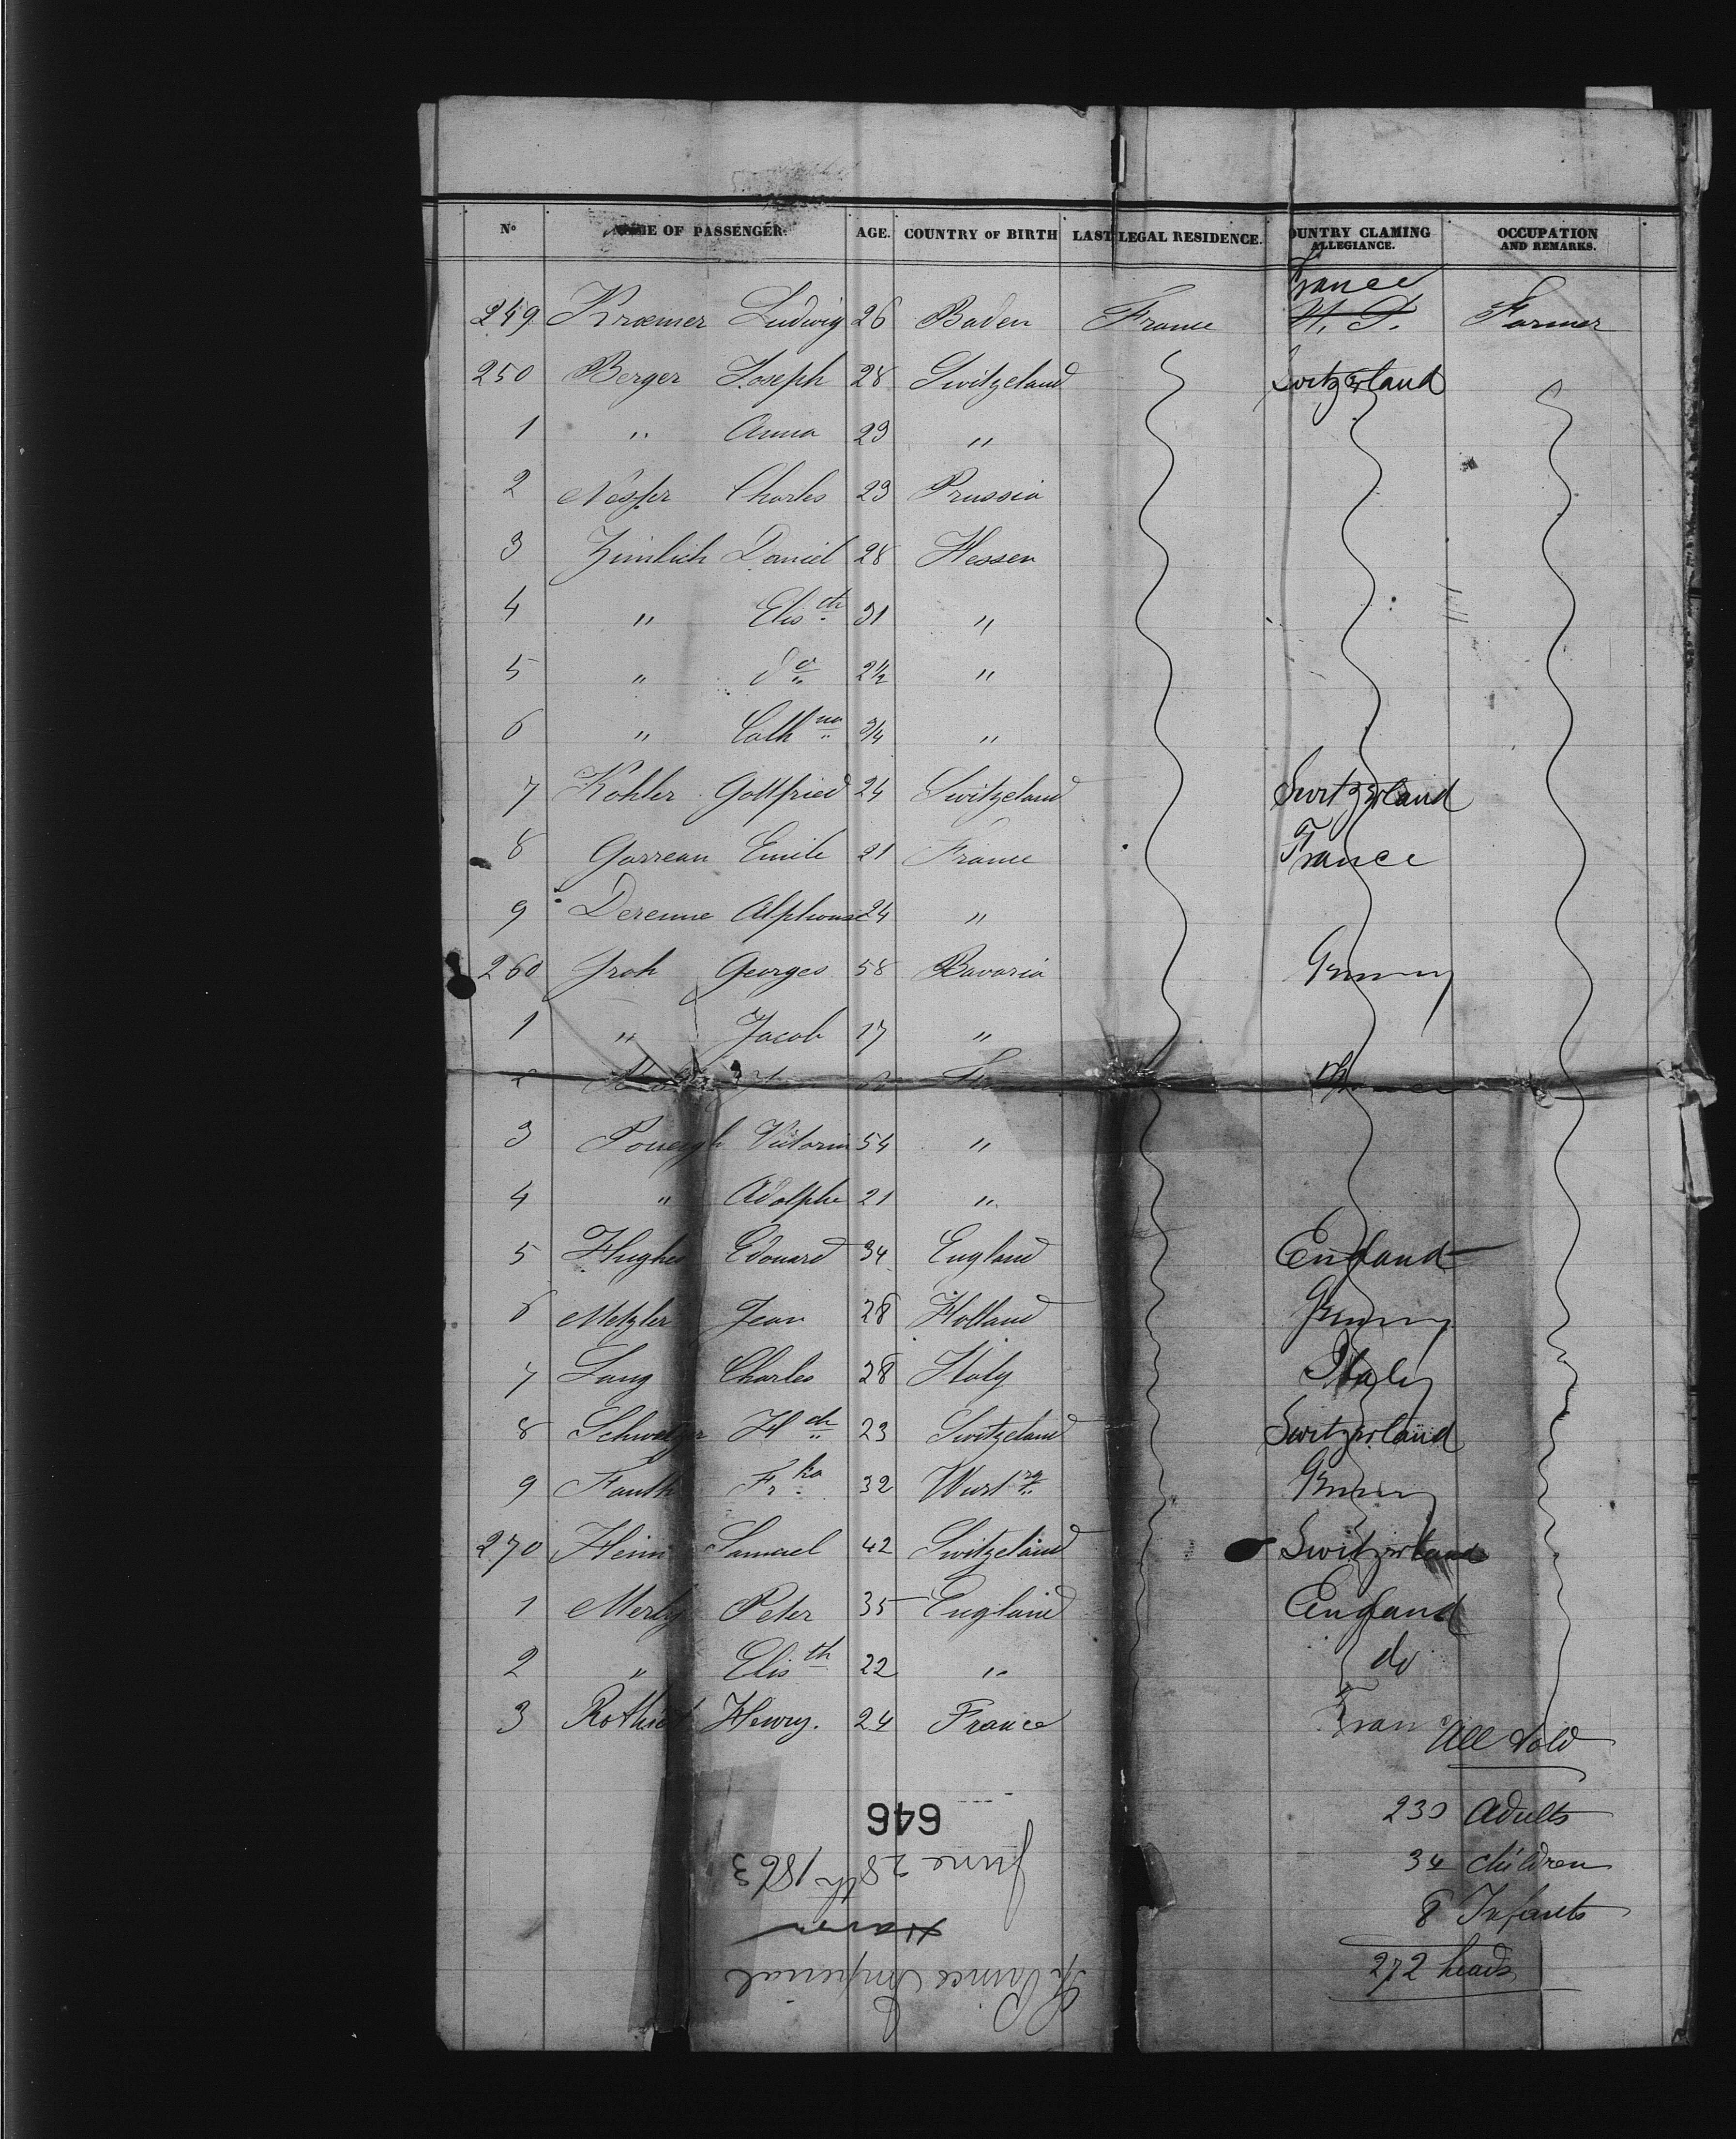 No NAME OF PASSENGER. AGE. COUNTRY OF BIRTH LAST LEGAL RESIDENCE. OUNTRY CLAMING ALLEGIANCE. OCCUPATION AND REMARKS.
France
249 Kroemer Ludwig 26 Baden France Farmer
250 Berger Joseph 28 Switzeland Switzerland
1 " Anna 29 "
2 Charles 29 Prussia
3 Zimlich Daniel 28 Hessen
4 " Elisth 31 "
5 " do 2 1/2 "
6 " Cathna 3/4 "
7 Kohler Gottfried 24 Switzeland Switzerland
8 Garreau Emile 21 France France
9 Derenne Alphonse 24 "
260 Groh Georges 58 Bavaria Germany
1 " Jacob 17 "
2
3 Victorin 54 "
4 " Adolphe 21 "
5 Hughes Edouard 34 England England
6 Metzler Jean 28 Holland Germany
7 Lang Charles 28 Italy Italy
8 Hch 23 Switzeland Switzerland
9 Fauth Frka 32 Wurtrg Germany
270 Samuel 42 Switzeland Switzerland
1 Peter 35 England England
2 " Elisth 22 " do
3 Henry. 24 France Fran
All told
230 Adults
34 Children
8 Infants
272 heads
646
June 28th 1863
Havre
Sh Prince Imperial